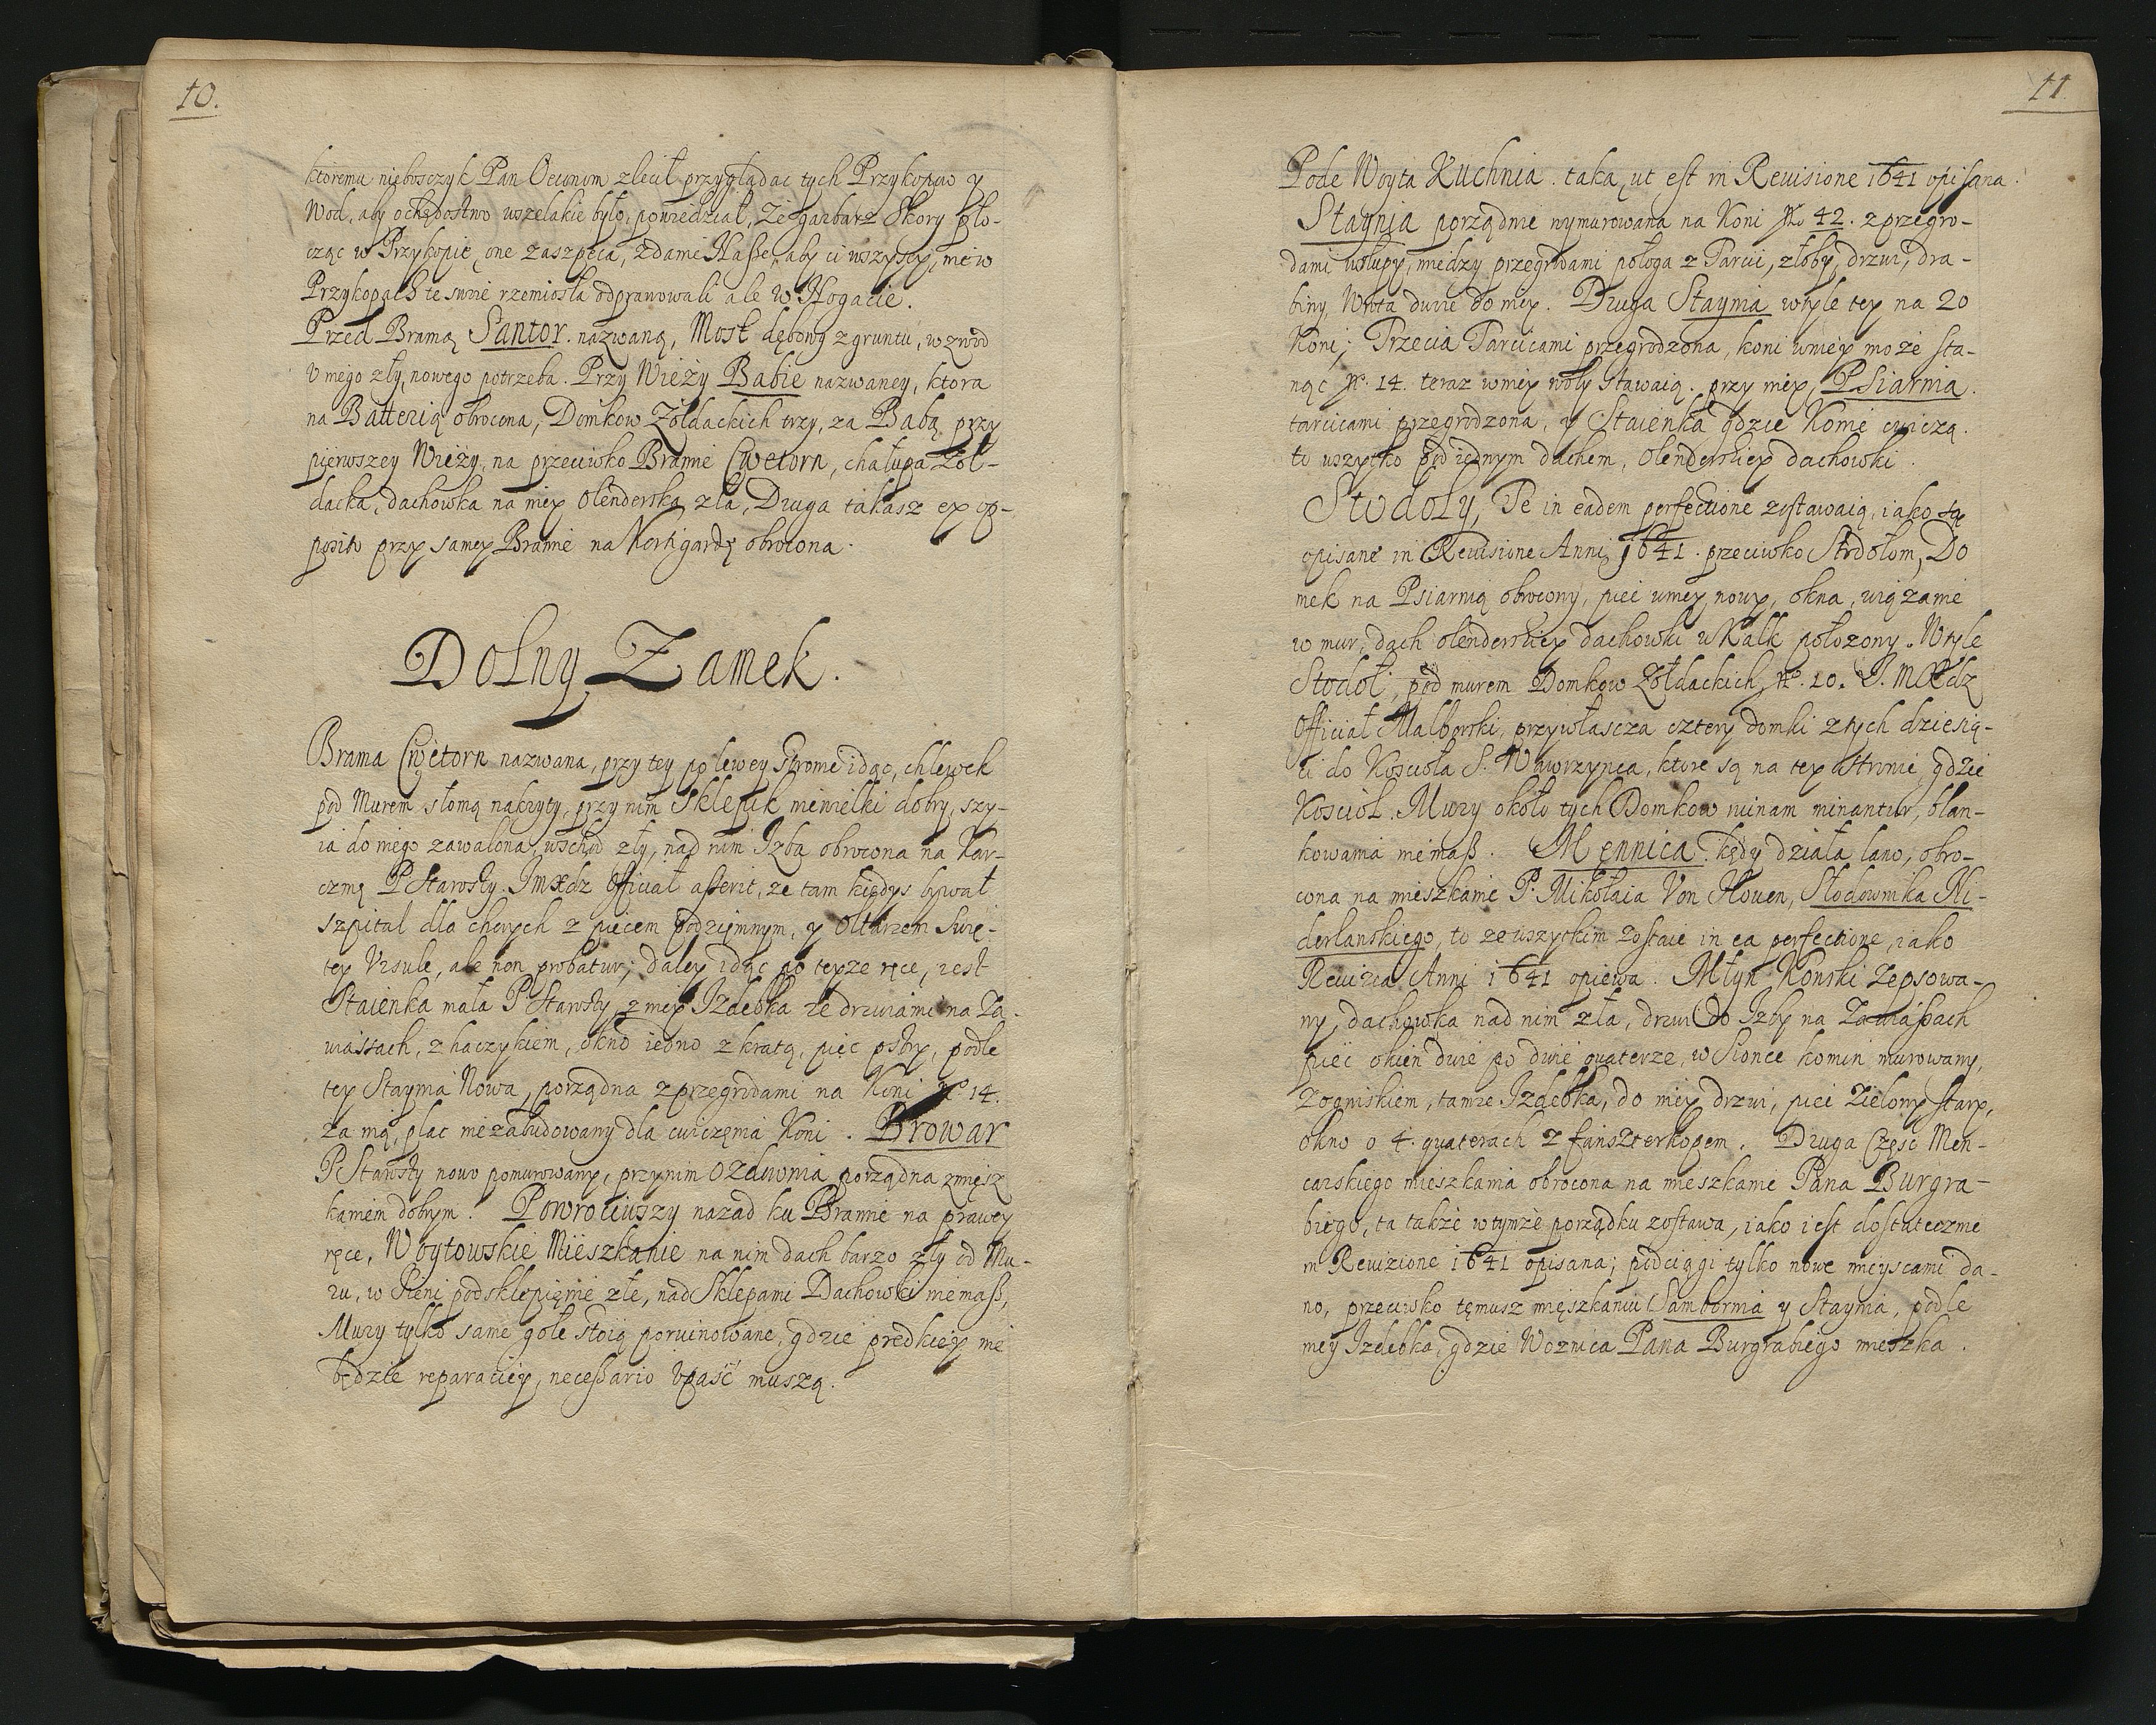 10.
ktoremu nieboszczyk Pan Oeconom zlecił przyglądac tych Przykopow y
Wod, aby ochędostwo wszelakie było, powiedział, Że garbarz Skory pło-
cząc w Przykopie one zaszpeca, zdanie Nasze, aby ci wszyscy, nie w
Przykopach te swoie rzemiosła odprawowali ale w Nogacie.
Przed Bramą Santor. nazwaną, Most dębowy z gruntu, wzwod
V niego zły, nowego potrzeba. Przy Wieży Babie nazwaney, ktora
na Batterią obrocona, Domkow Żołdackich trzy, za Babą przy
pierwszey Wieży, na przeciwko Bramie Cwetorn, chałupa Żoł-
dacka, dachowka na niey olenderska zła, Druga takasz ex op-
posito przy samey Bramie na Kortigardę obrocona.
Dolny Zamek.
Brama Cwetorn nazwana, przy tey po lewey stronie idąc, chlewek
pod Murem słomą nakryty, przy nim Sklepik niewielki dobry, szy-
ia do niego zawalona, wschod zły, nad nim Izba obrocona na Kar-
czmę P Starosty. Jmxdz Official asserit, ze tam kiedys bywał
szpital dla chorych z piecem podziemnym, y Ołtarzem Swię-
tey Vrsule, ale non probatur; daley idąc po teyze ręce, iest
Staienka mała P Starosty, z niey Izdebka ze drzwiami na Za-
wiassach, z haczykiem, okno iedno z kratą, piec psty, podle
tey Staynia Nowa, porządna z przegrodami na Koni No 14.
Za nią, plac niezabudowany dla cwiczęnia Koni. Browar
P Starosty nowo pomurowany, przy nim Ozdownia porządna z miesz
kaniem dobrym. Powrociwszy nazad ku Bramie na prawey
ręce, Woytowskie Mieszkanie na nim dach barzo zły od Mu-
ru, w Sieni podsklepięnie złe, nad Sklepami Dachowki niemasz,
Mury tylko same gołe stoią poruinowane, gdzie prędkiey nie
będzie reparaciey, necessario Vpaść muszą.
11
Pode Woyta Kuchnia. taka, ut est in Reuisione 1641 opisana.
Staynia porządnie wymurowana na Koni No 42. z przegro-
dami w słupy, miedzy przegrodami połoga z Tarcic, złoby, drzwi, dra-
biny, Wrota dwie do niey. Druga Staynia w tyle tey na 20
Koni; Trzecia Tarcicami przegrodzona, koni w niey może sta-
nąc No. 14. teraz w niey woły stawaią. przy niey, Psiarnia.
tarcicami przegrodzona, y Staienka gdzie Konie cwiczą.
to wszytko pod iednym dachem, olenderskiey dachowki.
Stodoły, Te in eadem perfectione zostawaią, iako są
opisane in Reuisione Anni 1641. przeciwko Stodołom, Do
mek na Psiarnią obrocony, piec w niey nowy, okna, wiązanie
w mur, dach olenderskiey dachowki w Kalk położony. W tyle
Stodoł, pod murem Domkow Żołdackich, No. 10. J. MXdz
Official Malborski, przywłascza cztery domki z tych dziesią-
ci do Koscioła S. Wawrzynca, ktore są na tey stronie, gdzie
Koscioł. Mury około tych Domkow ruinam minantur, blan-
kowania niemasz. Mennica. kędy działa lano, obro-
cona na mieszkanie P. Mikołaia Von Houen, Słodownika Ni-
derlanskiego, to ze wszystkim zostaie in ea perfectione, iako
Reuizia Anni 1641 opiewa. Młyn Konski zepsowa-
ny, dachowka nad nim zła, drzwi do Izby na Zawiasach
piec okien dwie po dwie quaterze, w Sionce komin murowany,
z ogniskiem, tamze Izdebka, do niey drzwi, piec Zielony stary,
okno o 4. quaterach z fanszterkopem. Druga Częsc Men-
carskiego mieszkania obrocona na mieszkanie Pana Burgra-
biego, ta także w tymże porządku zostawa, iako iest dostatecznie
in Reuizione 1641 opisana; podciągi tylko nowe mieyscami da-
no, przeciwko temusz mieszkaniu Sambornia y Staynia, podle
niey Izdebka, gdzie Woznica Pana Burgrabiego mieszka.